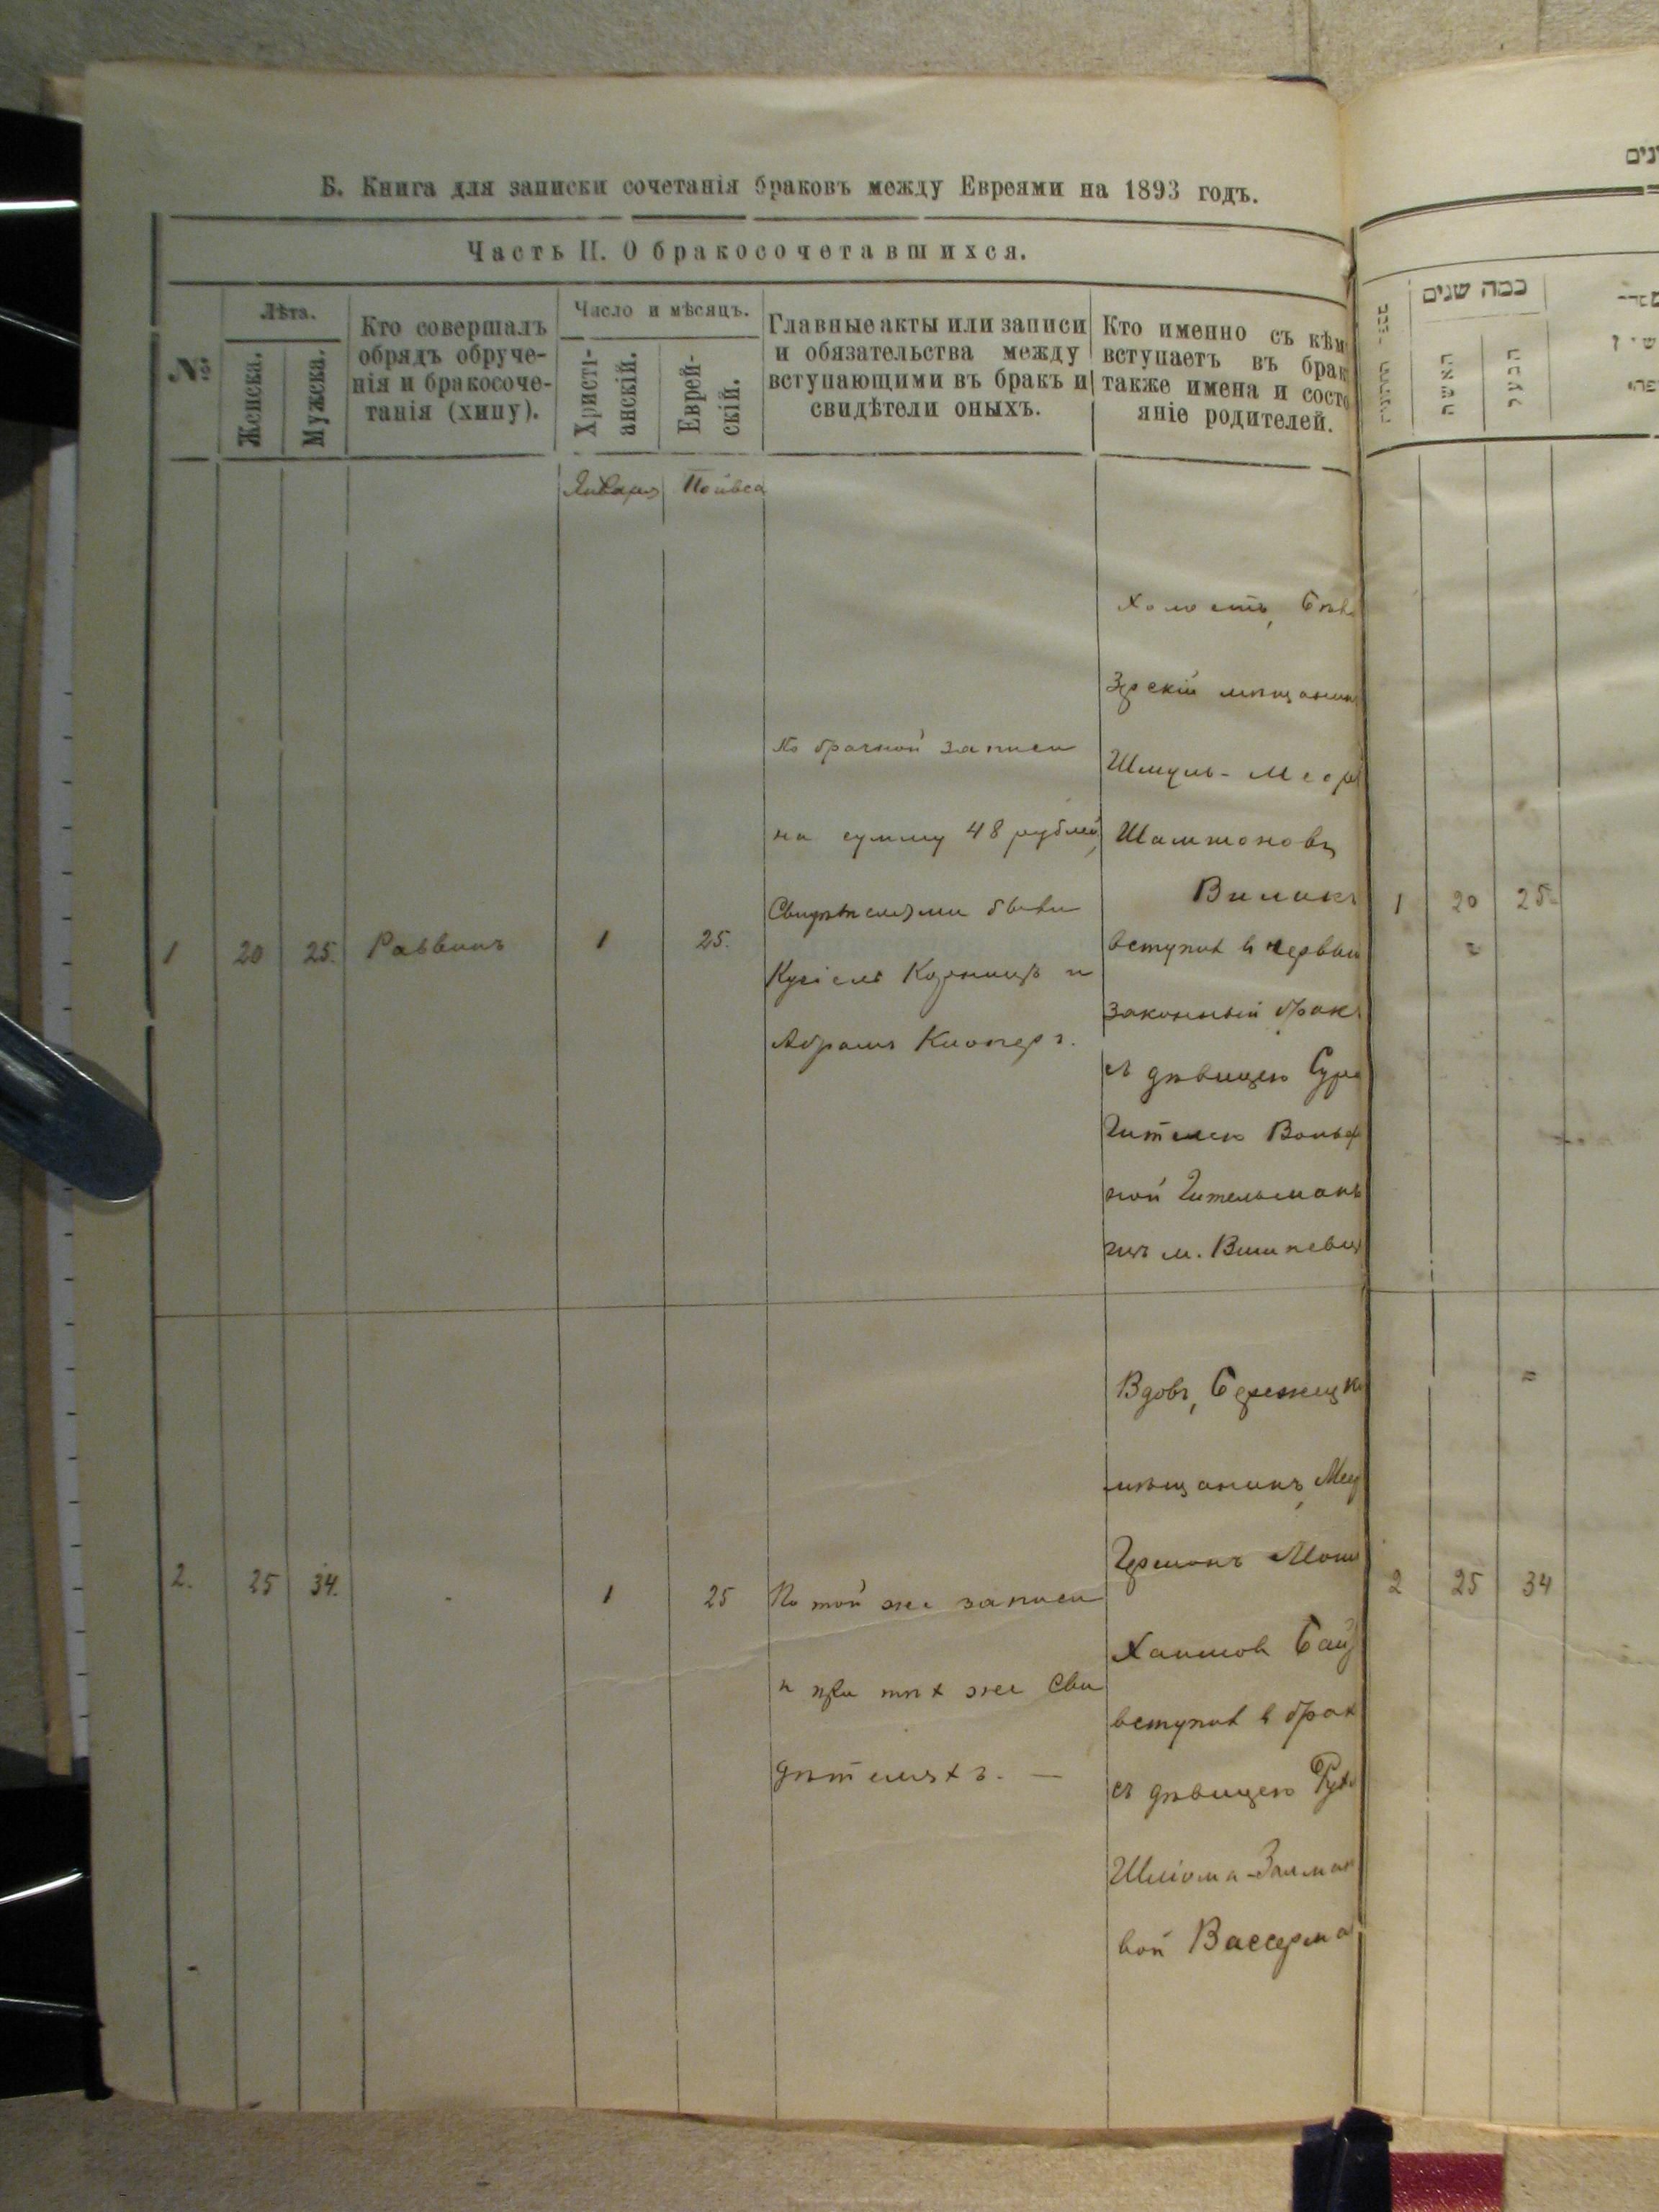 Б. Книга для записки сочетанія браковъ между Евреями на 1893 годъ.
Часть II. О бракосочетавшихся.
№
Лѣта.
Женска.
Мужска.
Кто совершалъ
обрядъ обруче-
нія и бракосоче-
танія (хипу).
Число и мѣсяцъ.
Христі-
анскій.
Еврей-
скій.
Главные акты или записи
и обязательства между
вступающими въ бракъ и
свидѣтели оныхъ.
Кто именно съ кѣм
вступаетъ въ брак
также имена и состо
яніе родителей.
Января
1 20 25. Раввинъ 1 25.
По брачной записи
на сумму 48 рублей,
Свидѣтелями были
Кусіель и
Абрамъ
Холостъ,
мѣщанин
Шмуль-
Шамшоновъ
Виликъ
вступил в первый
законный бракъ
съ дѣвицею Сура
Гителею
ной Гительманъ
изъ м.
2. 25 34. - 1 25
По той же записи
и при тѣх же Сви
дѣтеляхъ. —
Вдовъ,
мѣщанинъ,
Хаимов
вступил в брак
съ дѣвицею
Шлiома-Залман
вой Вассерма
כמה שנים
האשה
הבעל
1 20 25
2 25 34